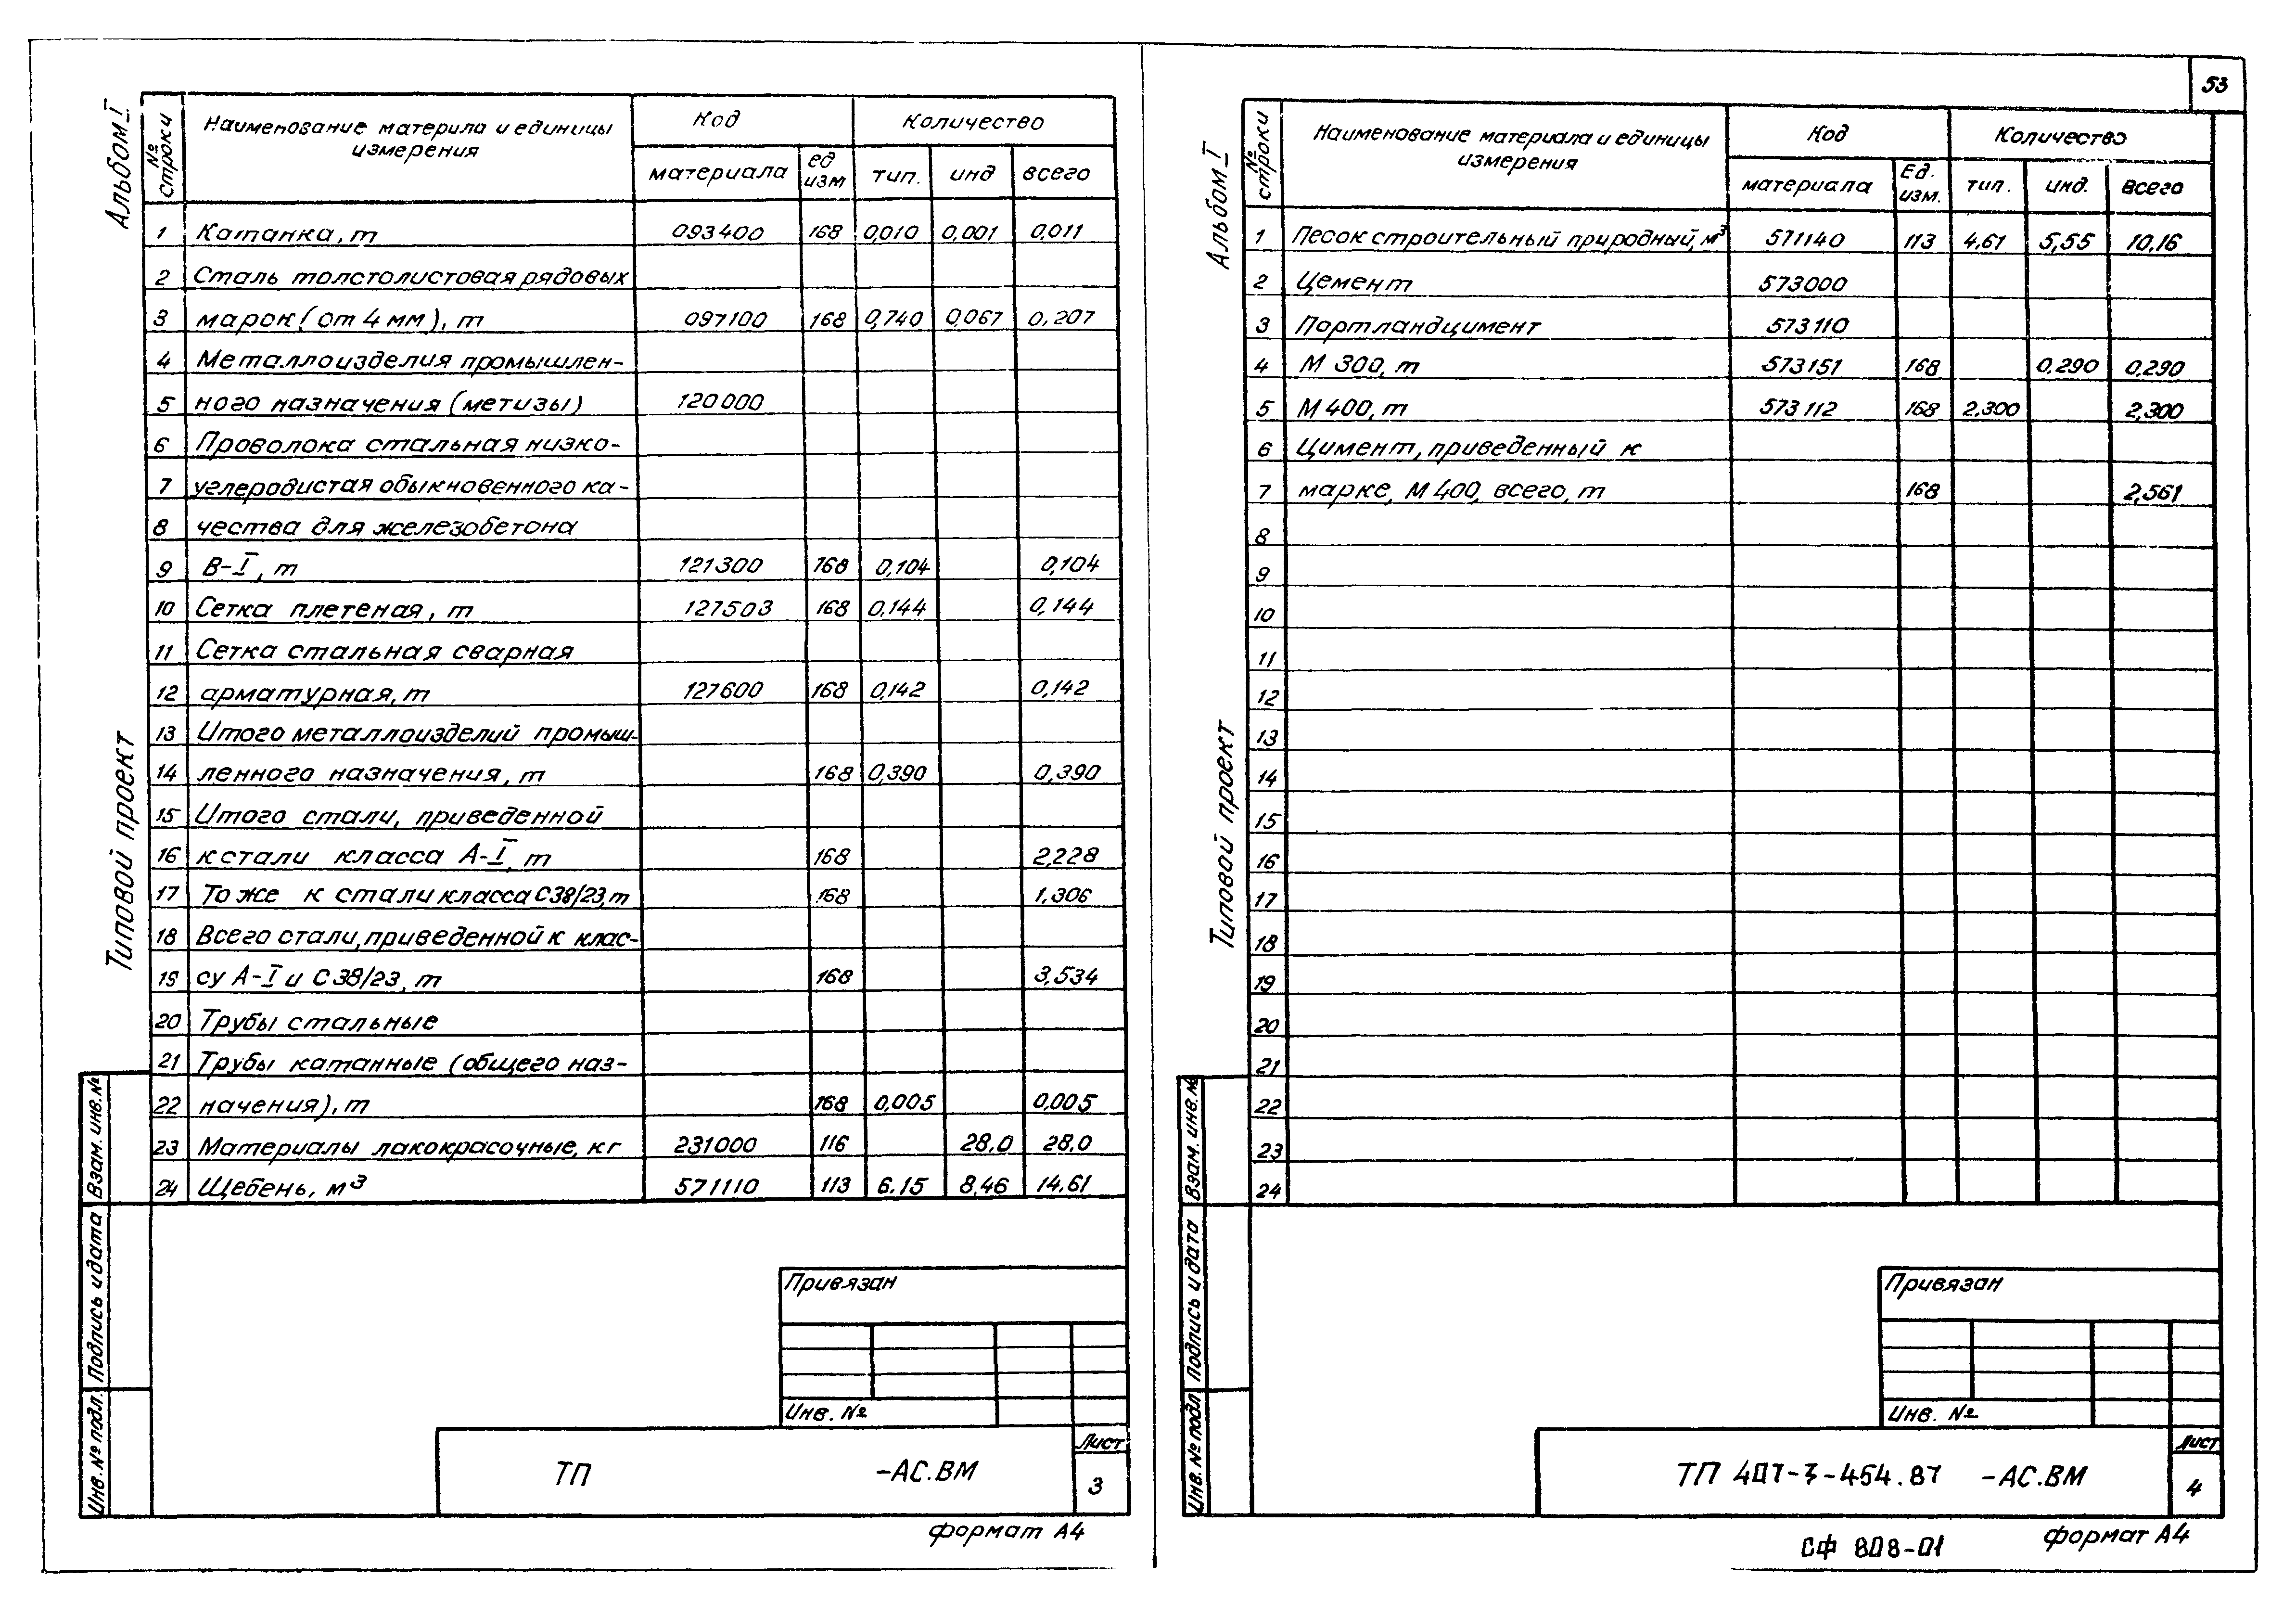 53
Альбом I
Типовой проект
№ строки
Наименование материла и единицы измерения
Код
Количество
материала
ед изм
тип.
инд
всего
1 Катанка, т 093400 168 0,010 0,001 0,011
2 Сталь толстолистовая рядовых
3 марок (от 4 мм), т 097100 168 0,740 0,067 0,207
4 Металлоизделия промышлен-
5 ного назначения (метизы) 120000
6 Проволока стальная низко-
7 углеродистая обыкновенного ка-
8 чества для железобетона
9 В-I, т 121300 168 0,104 0,104
10 Сетка плетеная, т 127503 168 0,144 0,144
11 Сетка стальная сварная
12 арматурная, т 127600 168 0,142 0,142
13 Итого металлоизделий промыш-
14 ленного назначения, т 168 0,390 0,390
15 Итого стали, приведенной
16 к стали класса А-I, т 168 2,228
17 То же к стали класса С38/23, т 168 1,306
18 Всего стали, приведенной к клас-
19 су А-I и С38/23, т 168 3,534
20 Трубы стальные
21 Трубы катанные (общего наз-
22 начения), т 168 0,005 0,005
23 Материалы лакокрасочные, кг 231000 116 28,0 28,0
24 Щебень, м3 571110 113 6.15 8,46 14.61
Взам. инв. №
Подпись и дата
Инв. № подл.
Привязан
Инв. №
ТП -АС.ВМ
Лист
3
формат А4
Альбом I
Типовой проект
№ строки
Наименование материала и единицы измерения
Код
Количество
материала
Ед. изм.
тип.
инд.
всего
1 Песок строительный природный, м3 571140 113 4,61 5,55 10,16
2 Цемент 573000
3 Портландцимент 573110
4 М 300, т 573151 168 0,290 0,290
5 М 400, т 573112 168 2,300 2,300
6 Цимент, приведенный к
7 марке, М 400, всего, т 168 2,561
8
9
10
11
12
13
14
15
16
17
18
19
20
21
22
23
24
Взам. инв. №
Подпись и дата
Инв. № подл
Привязан
Инв. №
ТП 407-3-454.87 -АС.ВМ
Лист
4
СФ 808-01
формат А4